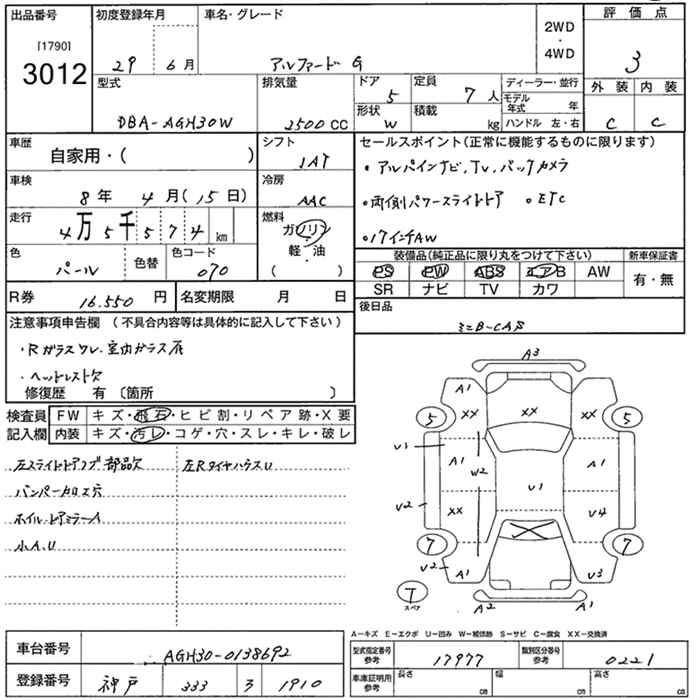 出品番号
[1790]
3012
初度登録年月
29 6月
車名・グレード
アルファード G
2WD
・
4WD
評価点
3
型式
DBA-AGH30W
排気量
2500 CC
ドア
5
形状
W
定員
7人
積載
kg
ディーラー・並行
モデル年式 年
ハンドル 左・右
外装 内装
C C
車歴
自家用・( )
シフト
IAT
車検
8年 4月(15日)
冷房
AAC
走行
4万5千574km
燃料
ガソリン
・
軽・油
( )
色
パール
色替
色コード
070
R券
16.550 円
名変期限 月 日
セールスポイント(正常に機能するものに限ります)
・アルパインナビ, TV, バックカメラ
・両側パワースライドドア ・ETC
・17インチAW
装備品(純正品に限り丸をつけて下さい)
新車保証書
PS PW ABS エアB AW
SR ナビ TV カワ
有・無
後日品
ミニB-CAS
注意事項申告欄 (不具合内容等は具体的に記入して下さい)
・Rガラスワレ. 室内ガラス居
・ヘッドレスト欠
修復歴 有 〔箇所 〕
検査員
記入欄
FW キズ・飛石・ヒビ割・リペア跡・X要
内装 キズ・汚レ・コゲ・穴・スレ・キレ・破レ
左スライドドアノブ部品欠 左RタイヤハウスU
バンパーカロエ穴
ホイル・ドアミラーA
小A.U
A3
A1 A1
XX XX XX
5 5
U1
A1 W2 A1
U1
U2 XX U4
7 7
U2 A1 U3
T
スペア
A2 A1
A-キズ E-エクボ U-凹み W-補修跡 S-サビ C-腐食 XX-交換済
車台番号
AGH30-0138692
型式指定番号
参考
17977
類別区分番号
参考
0221
登録番号
神戸 333 ろ 1910
車庫証明用
参考
長さ cm
幅 cm
高さ cm